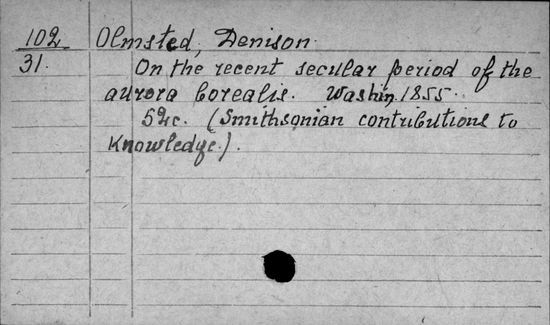 102 Olmsted, Denison.
31. On the recent secular period of the
aurora borealis. Washin. 1855.
52c. (Smithsonian contributions to
Knowledge.).